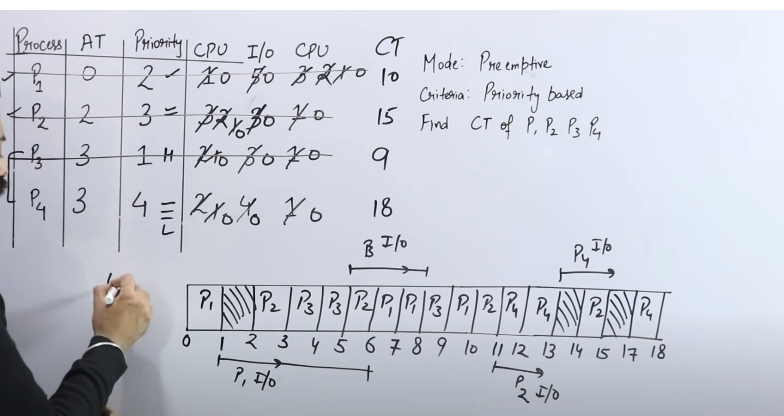 Process AT Priority CPU I/O CPU CT
P1 0 2 ✓ 1 0 5 0 3 2 1 0 10
P2 2 3 = 3 2 1 0 3 0 1 0 15
P3 3 1 H 2 1 0 3 0 1 0 9
P4 3 4 ≡ L 2 1 0 4 0 1 0 18
Mode: Preemptive
Criteria: Priority based
Find CT of P1 P2 P3 P4
P3 I/O
P4 I/O
P1 P2 P3 P3 P2 P1 P1 P3 P1 P2 P4 P4 P2 P4
0 1 2 3 4 5 6 7 8 9 10 11 12 13 14 15 17 18
P1 I/O
P2 I/O